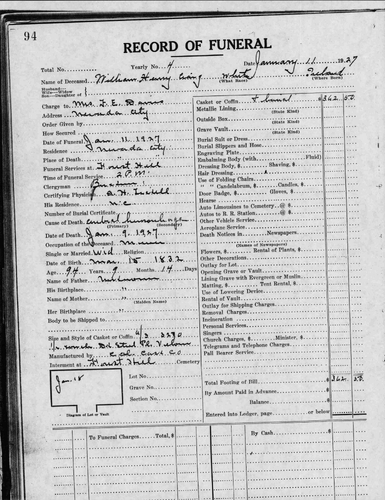 94
RECORD OF FUNERAL
Total No. Yearly No. 4 Date January 11 1927
Name of Deceased William Henry White Ireland
(What Race) (Where Born)
Husband—
Wife—Widow
Son—Daughter of
Charge to Mrs.
Address Nevada City
Order Given by
How Secured
Date of Funeral Jan. 11, 1927
Residence Nevada City
Place of Death " "
Funeral Services at
Time of Funeral Service 2 P.M.
Clergyman
Certifying Physician
His Residence N.C.
Number of Burial Certificate
Cause of Death
(Primary) (Secondary)
Date of Death Jan. 9, 1927
Occupation of the Deceased Miner
Single or Married Wid. Religion
Date of Birth Mar. 18 1832
Age 94 Years 9 Months 14 Days
Name of Father Unknown
His Birthplace "
Name of Mother "
(Maiden Name)
Her Birthplace "
Body to be Shipped
Size and Style of Casket or Coffin 6/3
Manufactured by Cal. Cask. Co.
Interment at Cemetery
Lot No.
Grave No.
Section No.
Diagram of Lot or Vault
Casket or Coffin + burial $ 362 50
Metallic Lining
(State Kind)
Outside Box
(State Kind)
Grave Vault
(State Kind)
Burial Suit or Dress
Burial Slippers and Hose
Engraving Plate
Embalming Body (with Fluid)
Dressing Body, $ Shaving, $
Hair Dressing
Use of Folding Chairs
" " Candelabrum, $ Candles, $
Door Badge, $ Gloves, $
Hearse
Auto Limousines to Cemetery, @ $
Autos to R. R. Station, @ $
Other Vehicle Service
Aeroplane Service
Death Notices in Newspapers
(Names of Newspapers)
Flowers, $ Rental of Plants, $
Other Decorations
Outlay for Lot
Opening Grave or Vault
Lining Grave with Evergreen or Muslin
Matting, $ Tent Rental, $
Use of Lowering Device
Rental of Vault
Outlay for Shipping Charges
Removal Charges
Incineration
Personal Services
Singers
Church Charges, $ Minister, $
Telegrams and Telephone Charges
Pall Bearer Service
Total Footing of Bill $ 362 50
By Amount Paid in Advance
Balance
Entered into Ledger, page or below
To Funeral Charges, Total, $ By Cash $